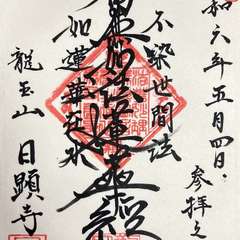 和六年五月四日参拝之
不染世間法
南無妙法蓮華経
如蓮華在水
龍玉山 日顕寺